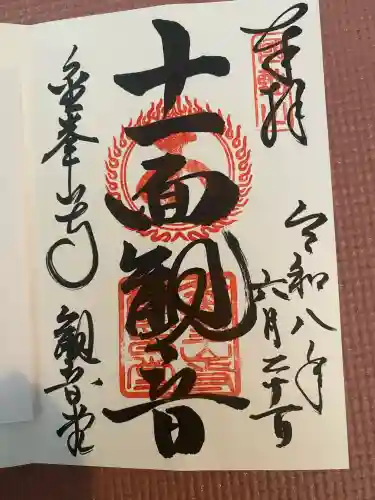 奉拝
令和八年
六月二十一日
十一面観音
金峯山寺
観音堂